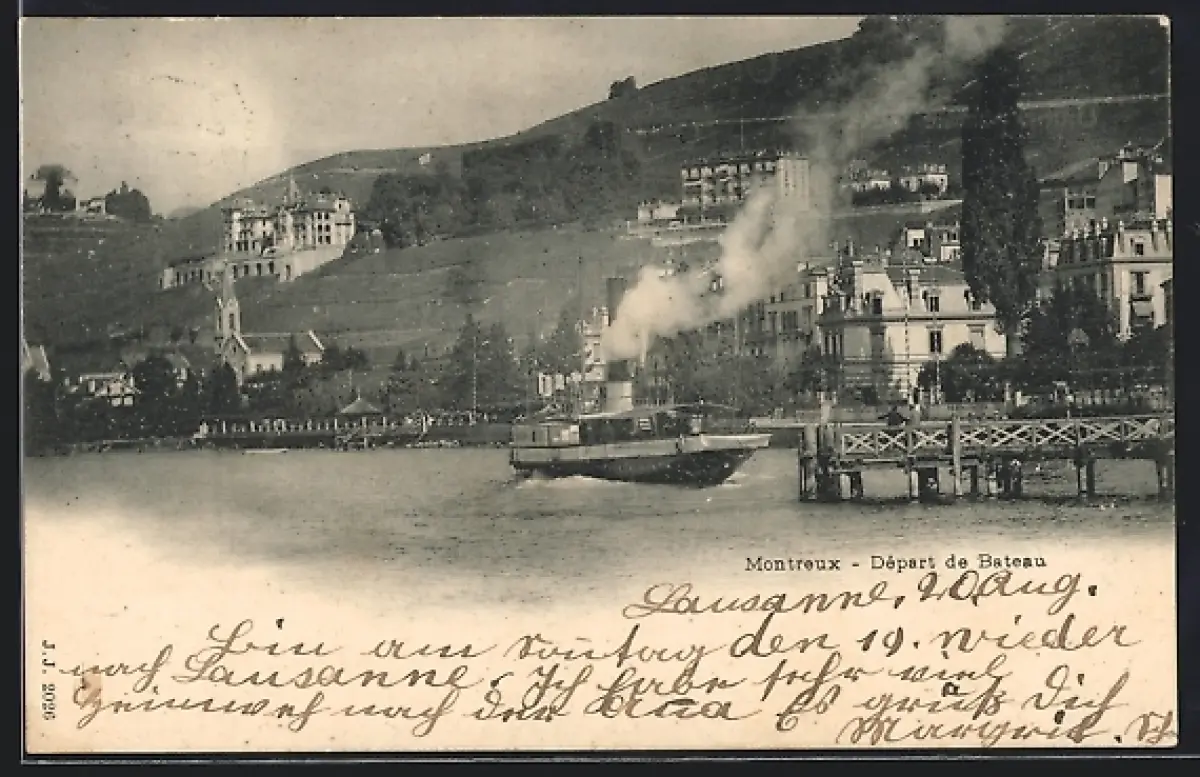 Montreux - Départ de Bateau
Lausanne, 20. Aug.
Bin am Sontag den 19. wieder
nach Lausanne. Ich habe sehr viel
Heimweh nach der Es grüß Dich
Margrit
J.J. 2026